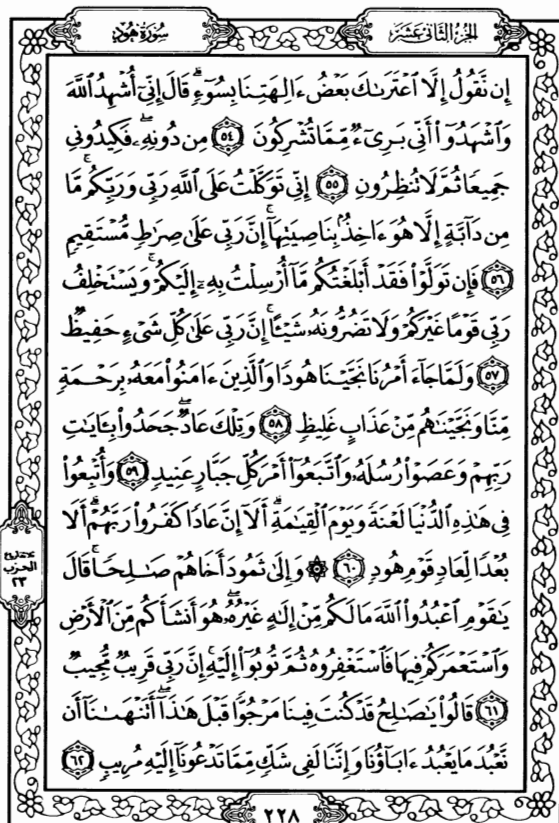 الجزء الثاني عشر
سورة هود
إِن نَّقُولُ إِلَّا ٱعْتَرَىٰكَ بَعْضُ ءَالِهَتِنَا بِسُوٓءٍۗ قَالَ إِنِّىٓ أُشْهِدُ ٱللَّهَ
وَٱشْهَدُوٓا۟ أَنِّى بَرِىٓءٌ مِّمَّا تُشْرِكُونَ ٥٤ مِن دُونِهِۦۖ فَكِيدُونِى
جَمِيعًا ثُمَّ لَا تُنظِرُونِ ٥٥ إِنِّى تَوَكَّلْتُ عَلَى ٱللَّهِ رَبِّى وَرَبِّكُمۚ مَّا
مِن دَآبَّةٍ إِلَّا هُوَ ءَاخِذٌۢ بِنَاصِيَتِهَآۚ إِنَّ رَبِّى عَلَىٰ صِرَٰطٍ مُّسْتَقِيمٍ
٥٦ فَإِن تَوَلَّوْا۟ فَقَدْ أَبْلَغْتُكُم مَّآ أُرْسِلْتُ بِهِۦٓ إِلَيْكُمْۚ وَيَسْتَخْلِفُ
رَبِّى قَوْمًا غَيْرَكُمْ وَلَا تَضُرُّونَهُۥ شَيْـًٔاۚ إِنَّ رَبِّى عَلَىٰ كُلِّ شَىْءٍ حَفِيظٌ
٥٧ وَلَمَّا جَآءَ أَمْرُنَا نَجَّيْنَا هُودًا وَٱلَّذِينَ ءَامَنُوا۟ مَعَهُۥ بِرَحْمَةٍ
مِّنَّا وَنَجَّيْنَٰهُم مِّنْ عَذَابٍ غَلِيظٍ ٥٨ وَتِلْكَ عَادٌۖ جَحَدُوا۟ بِـَٔايَٰتِ
رَبِّهِمْ وَعَصَوْا۟ رُسُلَهُۥ وَٱتَّبَعُوٓا۟ أَمْرَ كُلِّ جَبَّارٍ عَنِيدٍ ٥٩ وَأُتْبِعُوا۟
فِى هَٰذِهِ ٱلدُّنْيَا لَعْنَةً وَيَوْمَ ٱلْقِيَٰمَةِۗ أَلَآ إِنَّ عَادًا كَفَرُوا۟ رَبَّهُمْۗ أَلَا
بُعْدًا لِّعَادٍ قَوْمِ هُودٍ ٦٠ ۞ وَإِلَىٰ ثَمُودَ أَخَاهُمْ صَٰلِحًاۚ قَالَ
يَٰقَوْمِ ٱعْبُدُوا۟ ٱللَّهَ مَا لَكُم مِّنْ إِلَٰهٍ غَيْرُهُۥۖ هُوَ أَنشَأَكُم مِّنَ ٱلْأَرْضِ
وَٱسْتَعْمَرَكُمْ فِيهَا فَٱسْتَغْفِرُوهُ ثُمَّ تُوبُوٓا۟ إِلَيْهِۚ إِنَّ رَبِّى قَرِيبٌ مُّجِيبٌ
٦١ قَالُوا۟ يَٰصَٰلِحُ قَدْ كُنتَ فِينَا مَرْجُوًّا قَبْلَ هَٰذَآۖ أَتَنْهَىٰنَآ أَن
نَّعْبُدَ مَا يَعْبُدُ ءَابَآؤُنَا وَإِنَّنَا لَفِى شَكٍّ مِّمَّا تَدْعُونَآ إِلَيْهِ مُرِيبٍ ٦٢
الحزب
٢٣
٢٢٨